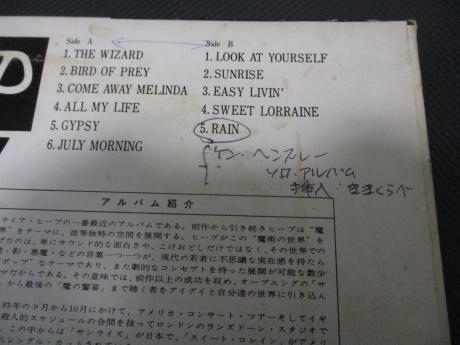 Side A
Side B
1. THE WIZARD
2. BIRD OF PREY
3. COME AWAY MELINDA
4. ALL MY LIFE
5. GYPSY
6. JULY MORNING
1. LOOK AT YOURSELF
2. SUNRISE
3. EASY LIVIN'
4. SWEET LORRAINE
5. RAIN
ケン・ヘンスレー
ソロ・アルバム
挿入 ききくらべ
アルバム紹介
ライア・ヒープの一番最近のアルバムである。前作から引き続きヒープは“魔
界”をテーマに、彼等独特の空間を展開する。ヒープがこの“魔術の世界”を
げたのは、単にサウンド的な面白さや、こけおどしだけではなく、その世界での
・悪魔・などの言葉一つ一つが、現代の若者に不思議な実在感を持たら
ポップ”なテーマであり、また劇的なコンセプトを持った展開が可能な数少
マだからである。その意味では、前作以上の成功を収め、オープニングの“サ
から最後の“魔の饗宴”まで聴く者をグイグイと自分達の世界に引き込ん
昨年の9月から10月にかけて、アメリカ・コンサート・ツアーそしてイギ
殺人的スケジュールの合間を抜ってロンドンのランズドーン・スタジオで
この中からは“サンライズ”が日本で、“スイート・ロレイン”がアメリ